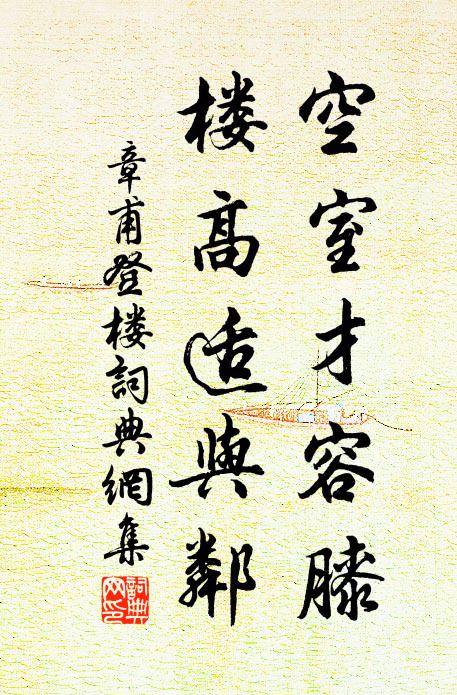 空室才容膝
楼高适與鄰
章甫登楼詞典網集
詞典網印